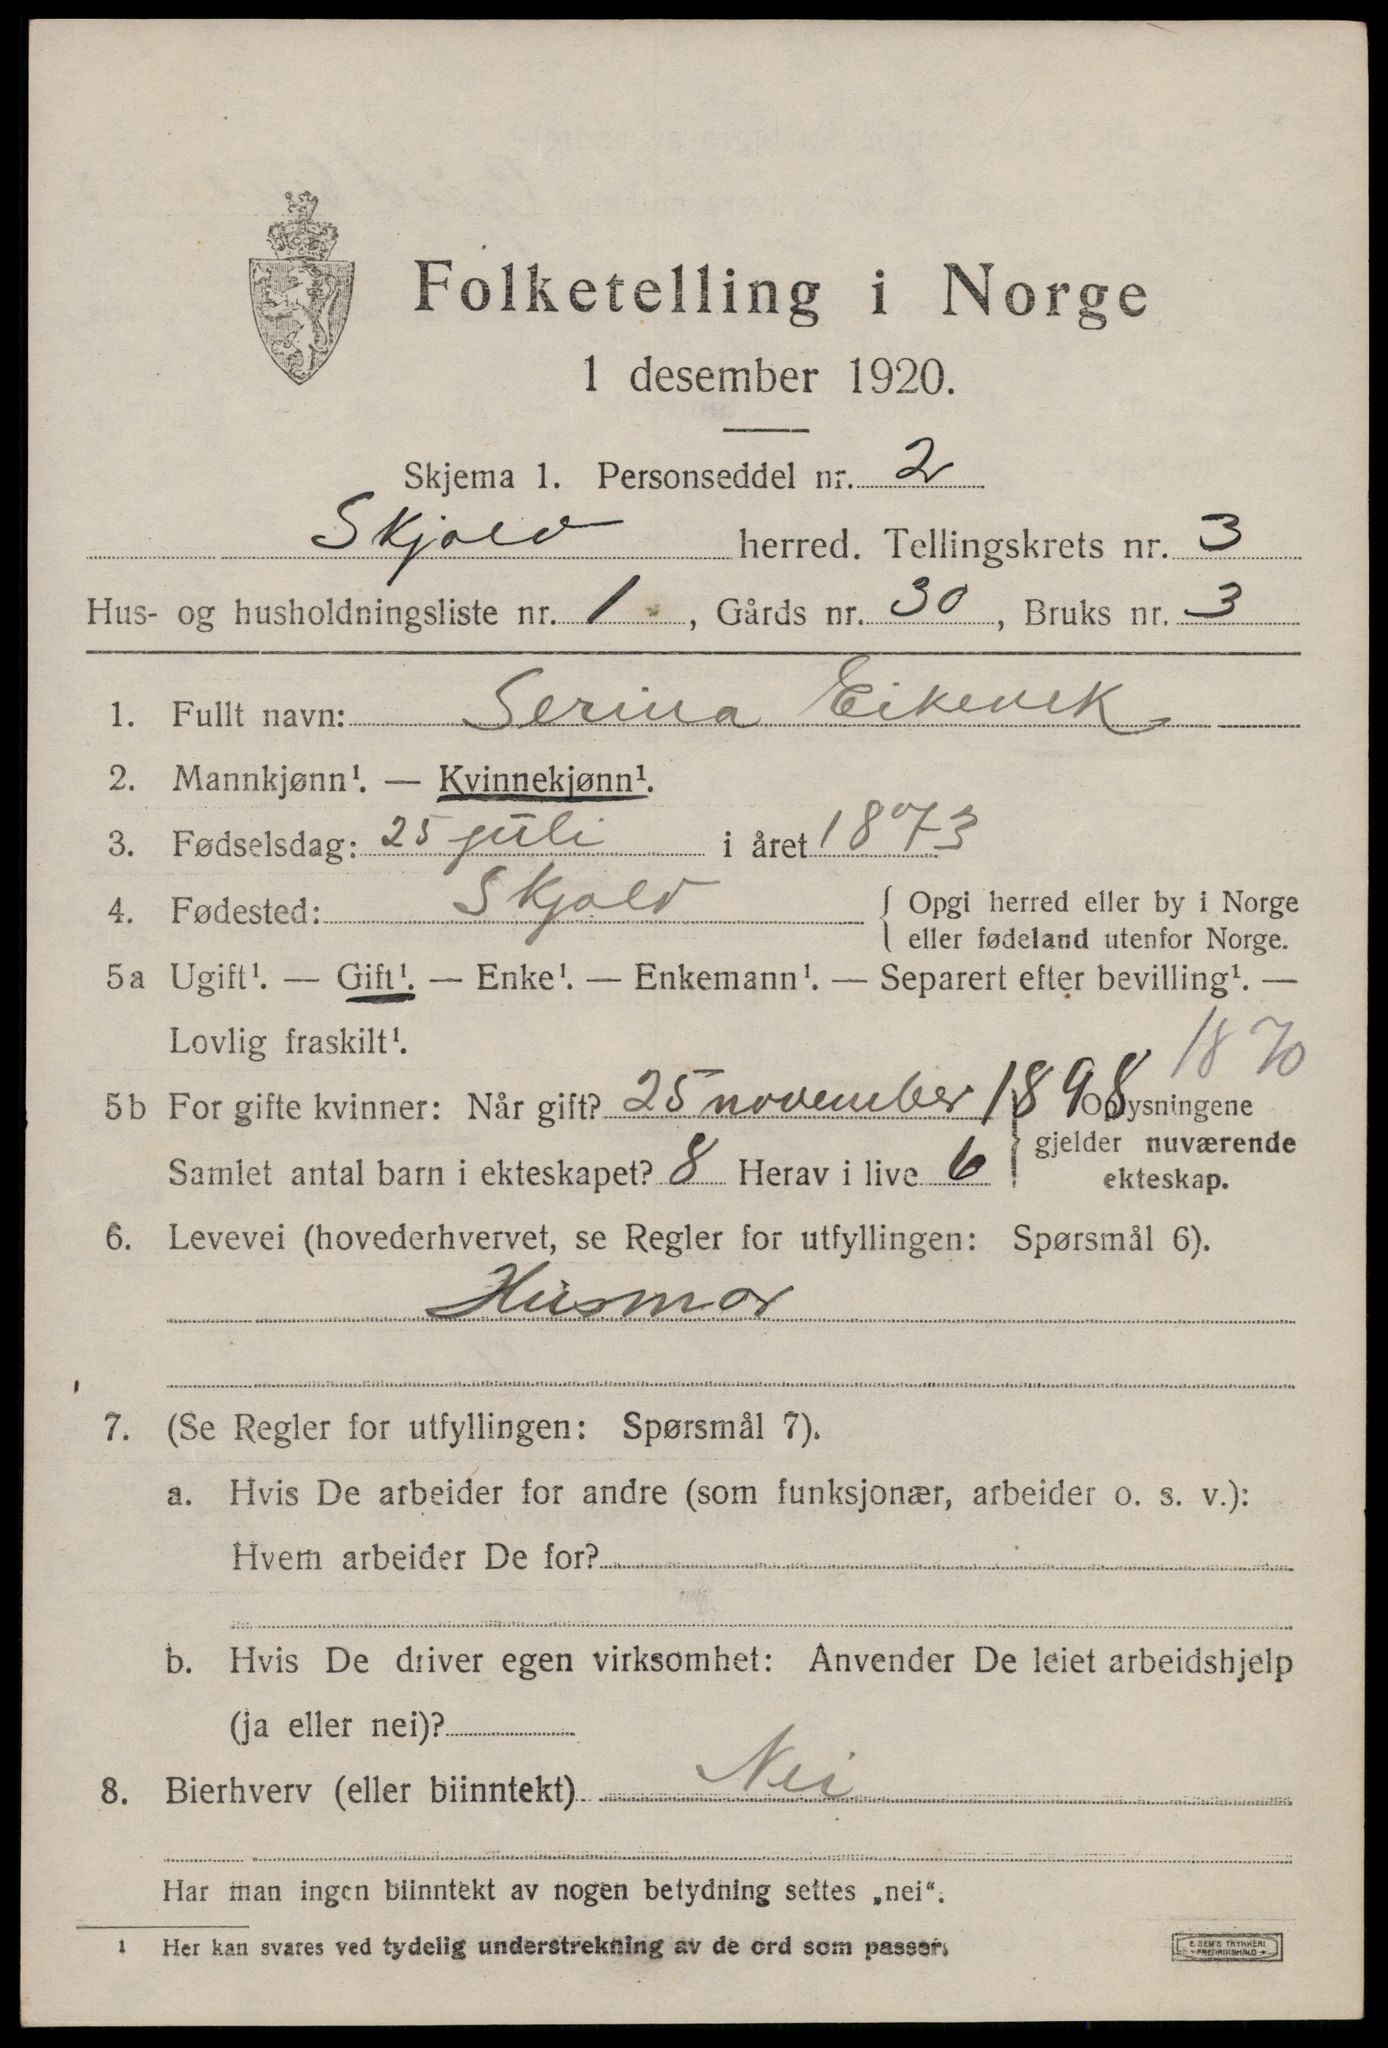 Folketelling i Norge
1 desember 1920.
Skjema 1. Personseddel nr. 2
Skjold herred. Tellingskrets nr. 3
Hus- og husholdningsliste nr. 1, Gårds nr. 30, Bruks nr. 3
1. Fullt navn: Serina Eikevik
2. Mannkjønn¹. — Kvinnekjønn¹.
3. Fødselsdag: 25 juli i året 1873
4. Fødested: Skjold { Opgi herred eller by i Norge
eller fødeland utenfor Norge.
5a Ugift¹. — Gift¹. — Enke¹. — Enkemann¹. — Separert efter bevilling¹. —
Lovlig fraskilt¹.
1870
5b For gifte kvinner: Når gift? 25 november 1898 } Oplysningene
gjelder nuværende
Samlet antal barn i ekteskapet? 8 Herav i live 6 ekteskap.
6. Levevei (hovederhvervet, se Regler for utfyllingen: Spørsmål 6).
Husmor
7. (Se Regler for utfyllingen: Spørsmål 7).
a. Hvis De arbeider for andre (som funksjonær, arbeider o. s. v.):
Hvem arbeider De for?
b. Hvis De driver egen virksomhet: Anvender De leiet arbeidshjelp
(ja eller nei)?
8. Bierhverv (eller biinntekt) Nei
Har man ingen biinntekt av nogen betydning settes „nei“.
1 Her kan svares ved tydelig understrekning av de ord som passer.
E. SEM'S TRYKKERI
FREDRIKSHALD